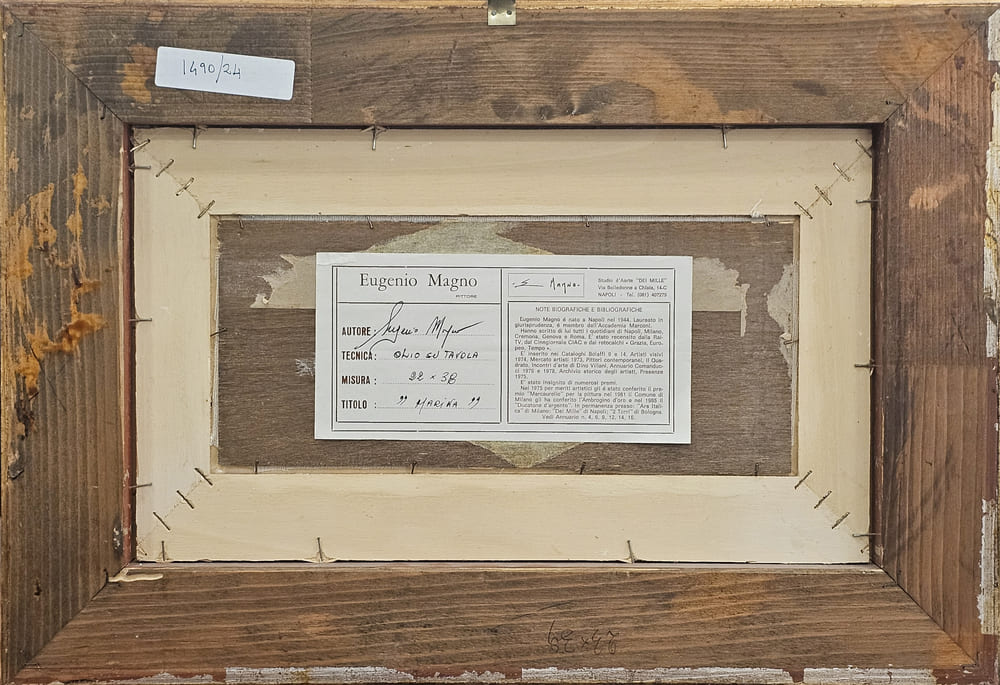 1490/24
Eugenio Magno
PITTORE
AUTORE: Eugenio Magno
TECNICA: OLIO SU TAVOLA
MISURA: 22 x 38
TITOLO: " MARINA "
E Magno.
Studio d'Aarte "DEI MILLE"
Via Belledonne a Chiaia, 14-C
NAPOLI - Tel. (081) 407279
NOTE BIOGRAFICHE E BIBLIOGRAFICHE
Eugenio Magno è nato a Napoli nel 1944. Laureato in
giurisprudenza, è membro dell'Accademia Marconi.
Hanno scritto di lui tutti i quotidiani di Napoli, Milano,
Cremona, Genova e Roma. E' stato recensito dalla Rai-
TV, dal Cinegiornale CIAC e dai rotocalchi « Grazia, Euro-
peo, Tempo ».
E' inserito nei Cataloghi Bolaffi 9 e 14, Artisti visivi
1974, Mercato artisti 1973, Pittori contemporanei, Il Qua-
drato. Incontri d'arte di Dino Villani, Annuario Comanduc-
ci 1975 e 1978, Archivio storico degli artisti, Presenze
1975.
E' stato insignito di numerosi premi.
Nel 1975 per meriti artistici gli è stato conferito il pre-
mio "Marcaurelio" per la pittura nel 1981 il Comune di
Milano gli ha conferito l'Ambrogino d'oro e nel 1985 il
"Ducatone d'argento". In permanenza presso: "Ars Itali-
ca" di Milano; "Dei Mille" di Napoli; "2 Torri" di Bologna.
Vedi Annuario n. 4, 6, 9, 12, 14, 15.